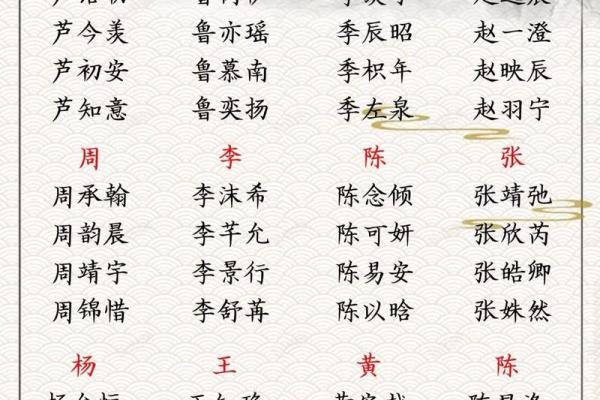 芦今羡 鲁亦瑶 季辰昭 赵一澄
芦初安 鲁慕南 季枳年 赵映辰
芦知意 鲁奕扬 季左泉 赵羽宁
周 李 陈 张
周承翰 李沫希 陈念倾 张靖弛
周韵晨 李芊允 陈可妍 张欣芮
周靖宇 李景行 陈易安 张皓卿
周锦惜 李舒苒 陈以晗 张姝然
杨 王 黄 陈